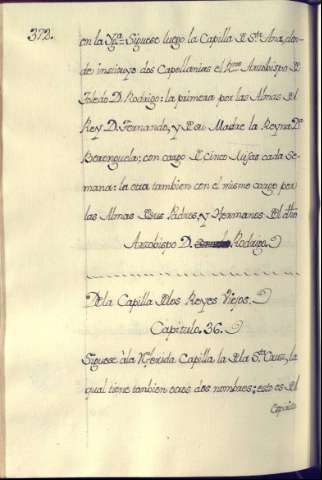 372.
en la Yga. Siguese luego la Capilla de Sta. Ana, don-
de instituyo dos Capellanias el Rmo. Arzobispo de
Toledo D. Rodrigo: la primera por las Almas del
Rey D. Fernando, y de su Madre la Reyna Da.
Berenguela; con cargo de cinco Misas cada Se-
mana: la otra tambien con el mismo cargo por
las Almas de sus Padres, y Hermanos del dho
Arzobispo D. Rodrigo.
De la Capilla de los Reyes Viejos.
Capitulo, 36.
Siguese à la referida Capilla la de la Sta. Cruz, la
qual tiene tambien otros dos nombres; esto es del
Espiritu